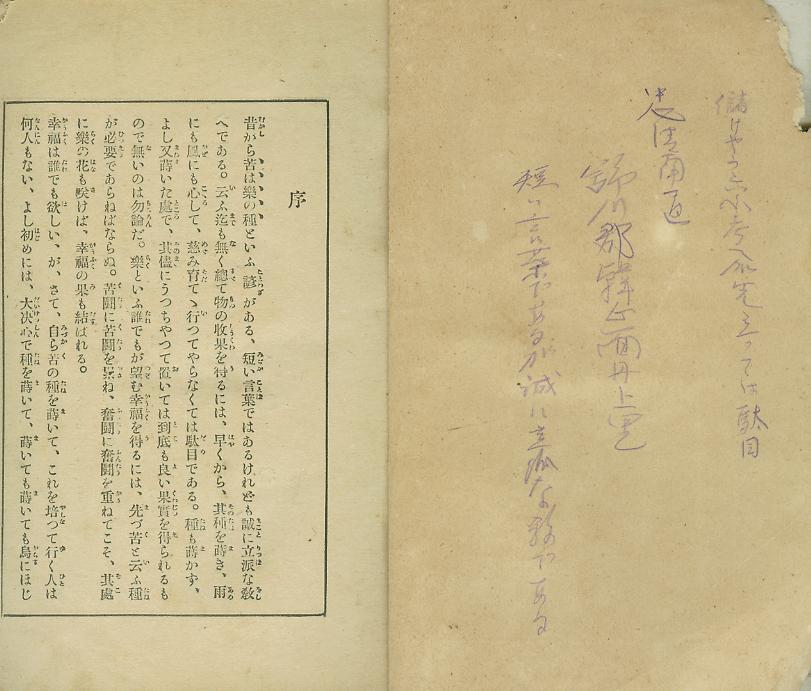 儲けやう 考へが先立つては駄目
忠清南道
舒川郡韓山面丹上里
短い言葉であるが誠に立派な教である
序
昔から苦は樂の種といふ諺がある、短い言葉ではあるけれども誠に立派な敎
へである。云ふ迄も無く總て物の收果を得るには、早くから、其種を蒔き、雨
にも風にも心して、慈み育てゝ行つてやらなくては駄目である。種も蒔かず、
よし又蒔いた處で、其儘にうつちやつて置いては到底も良い果實を得られるも
ので無いのは勿論だ。樂といふ誰でもが望む幸福を得るには、先づ苦と云ふ種
が必要であらねばならぬ。苦鬪に苦鬪を累ね、奮鬪に奮鬪を重ねてこそ、其處
に樂の花も咲けば、幸福の果も結ばれる。
幸福は誰でも欲しい、が、さて、自ら苦の種を蒔いて、これを培つて行く人は
何人もない、よし初めには、大决心で種を蒔いて、蒔いても蒔いても鳥にほじ